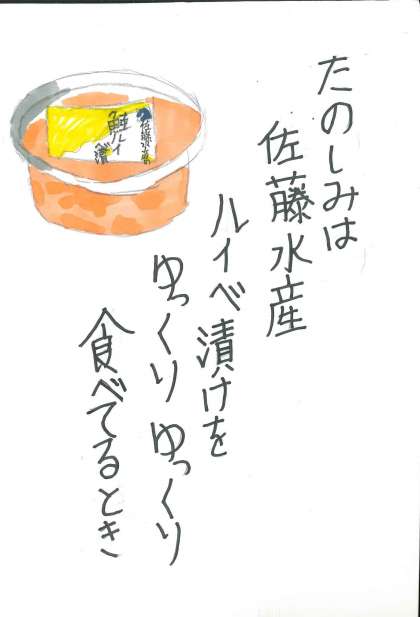 たのしみは
佐藤水産
ルイベ漬けを
ゆっくりゆっくり
食べてるとき
佐藤水産
鮭ルイ
漬